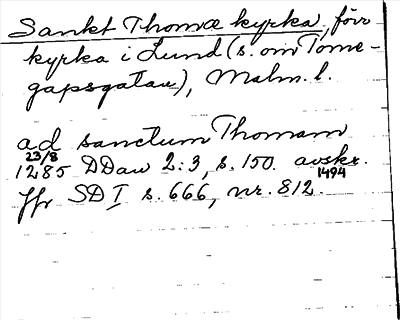 Sankt Thomæ kyrka, förr
kyrka i Lund (s. om Tome-
gapsgatan), Malm. l.
ad sanctum Thomam
23/8
1285 DDan 2:3, s. 150. avskr.
1494
Jfr SD I s. 666, nr. 812.